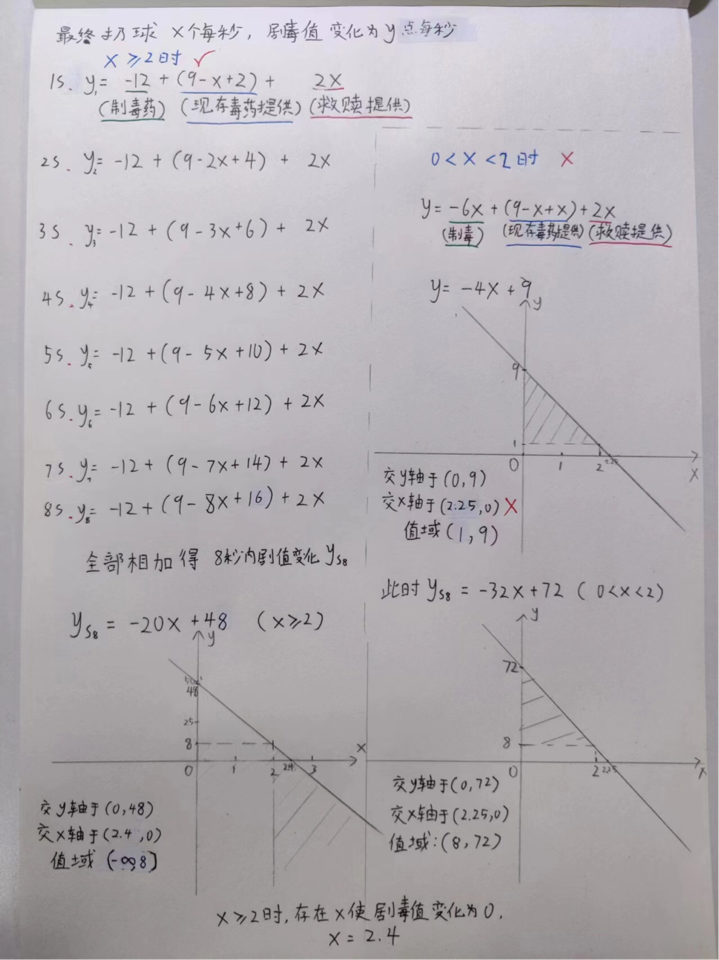 最终扔球 X个每秒，剧毒值变化为y点每秒
X≥2时 ✓
1s. y₁= -12 + (9-x+2) + 2X
(制毒药) (现存毒药提供) (救赎提供)
2s. y₂= -12 + (9-2x+4) + 2X
3s. y₃= -12 + (9-3x+6) + 2X
4s. y₄= -12 + (9-4x+8) + 2X
5s. y₅= -12 + (9-5x+10) + 2X
6s. y₆= -12 + (9-6x+12) + 2X
7s. y₇= -12 + (9-7x+14) + 2X
8s. y₈= -12 + (9-8x+16) + 2X
全部相加得 8秒内剧值变化 yS8
yS8 = -20X +48 (X≥2)
y
48
25
8
0 1 2 2.4 3
X
交y轴于(0,48)
交X轴于(2.4,0)
值域(-∞,8]
0<X<2时 X
y= -6X + (9-X+X) + 2X
(制毒) (现存毒药提供) (救赎提供)
y= -4X+9
y
9
1
0 1 2 2.25
X
交y轴于(0,9)
交X轴于(2.25,0) X
值域(1,9)
此时 yS8 = -32X+72 (0<X<2)
y
72
8
0 2 2.25
X
交y轴于(0,72)
交X轴于(2.25,0)
值域:(8,72)
X≥2时,存在X使剧毒值变化为0,
X=2.4